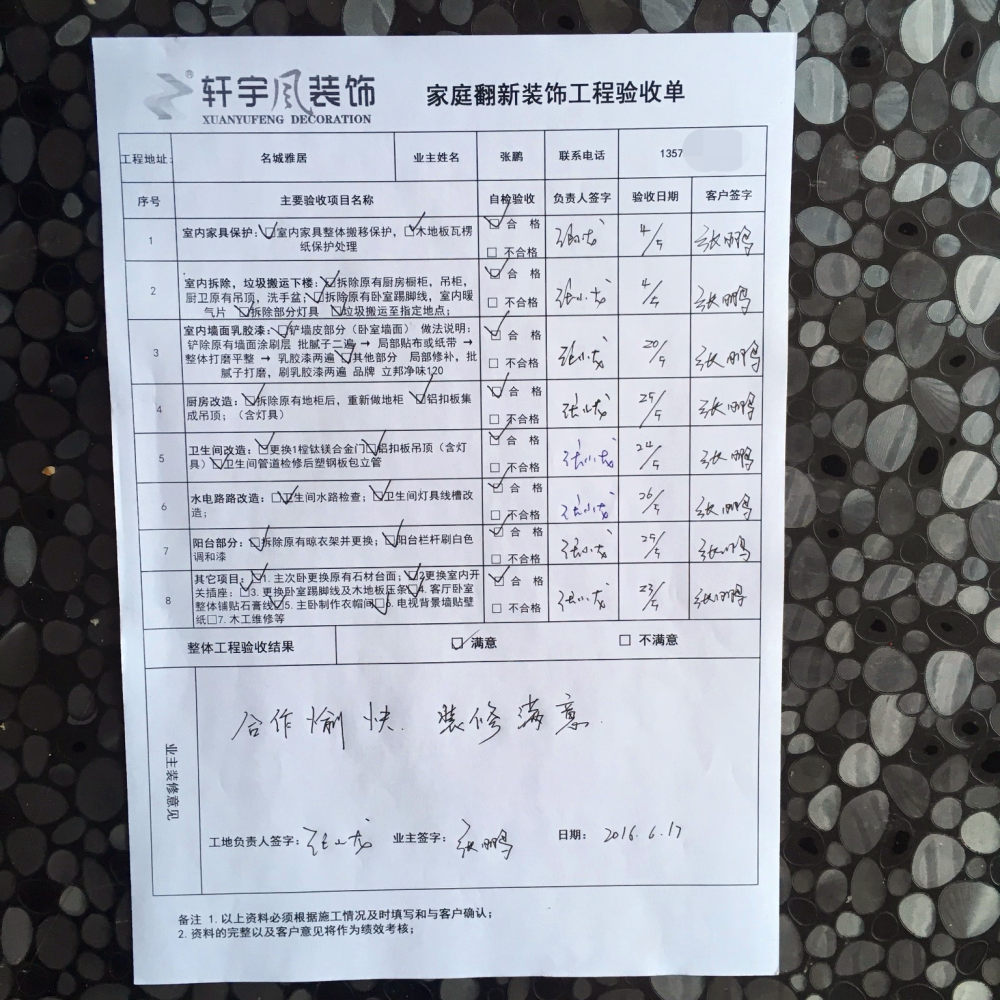 轩宇风装饰
XUANYUFENG DECORATION
家庭翻新装饰工程验收单
工程地址: 名城雅居 业主姓名 张鹏 联系电话 1357
序号 主要验收项目名称 自检验收 负责人签字 验收日期 客户签字
1 室内家具保护：☑室内家具整体搬移保护，☑木地板瓦楞 ☑合 格 张小龙 4/5 张鹏
纸保护处理 □不合格
2 室内拆除，垃圾搬运下楼：☑拆除原有厨房橱柜，吊柜， ☑合 格 张小龙 4/5 张鹏
厨卫原有吊顶，洗手盆；☑拆除原有卧室踢脚线，室内暖 □不合格
气片 ☑拆除部分灯具 ☑垃圾搬运至指定地点；
3 室内墙面乳胶漆：☑铲墙皮部分（卧室墙面） 做法说明： ☑合 格 张小龙 20/5 张鹏
铲除原有墙面涂刷层 批腻子二遍 → 局部贴布或纸带 →
整体打磨平整 → 乳胶漆两遍 ☑其他部分 局部修补，批 □不合格
腻子打磨，刷乳胶漆两遍 品牌 立邦净味120
4 厨房改造：☑拆除原有地柜后，重新做地柜 ☑铝扣板集 ☑合 格 张小龙 25/5 张鹏
成吊顶；（含灯具） □不合格
5 卫生间改造：☑更换1樘钛镁合金门☑铝扣板吊顶（含灯 ☑合 格 张小龙 24/5 张鹏
具）☑卫生间管道检修后塑钢板包立管 □不合格
6 水电路路改造：☑卫生间水路检查；☑卫生间灯具线槽改 ☑合 格 张小龙 26/5 张鹏
造； □不合格
7 阳台部分：☑拆除原有晾衣架并更换；☑阳台栏杆刷白色 ☑合 格 张小龙 25/5 张鹏
调和漆 □不合格
8 其它项目：☑1. 主次卧更换原有石材台面；☑2更换室内开 ☑合 格 张小龙 23/5 张鹏
关插座；☑3. 更换卧室踢脚线及木地板压条☑4. 客厅卧室
整体铺贴石膏线☑5. 主卧制作衣帽间☑6. 电视背景墙贴壁 □不合格
纸□7. 木工维修等
整体工程验收结果 ☑ 满意 □ 不满意
业主装修意见
合作愉快. 装修满意.
工地负责人签字：张小龙 业主签字：张鹏 日期： 2016.6.17
备注 1. 以上资料必须根据施工情况及时填写和与客户确认；
2. 资料的完整以及客户意见将作为绩效考核；